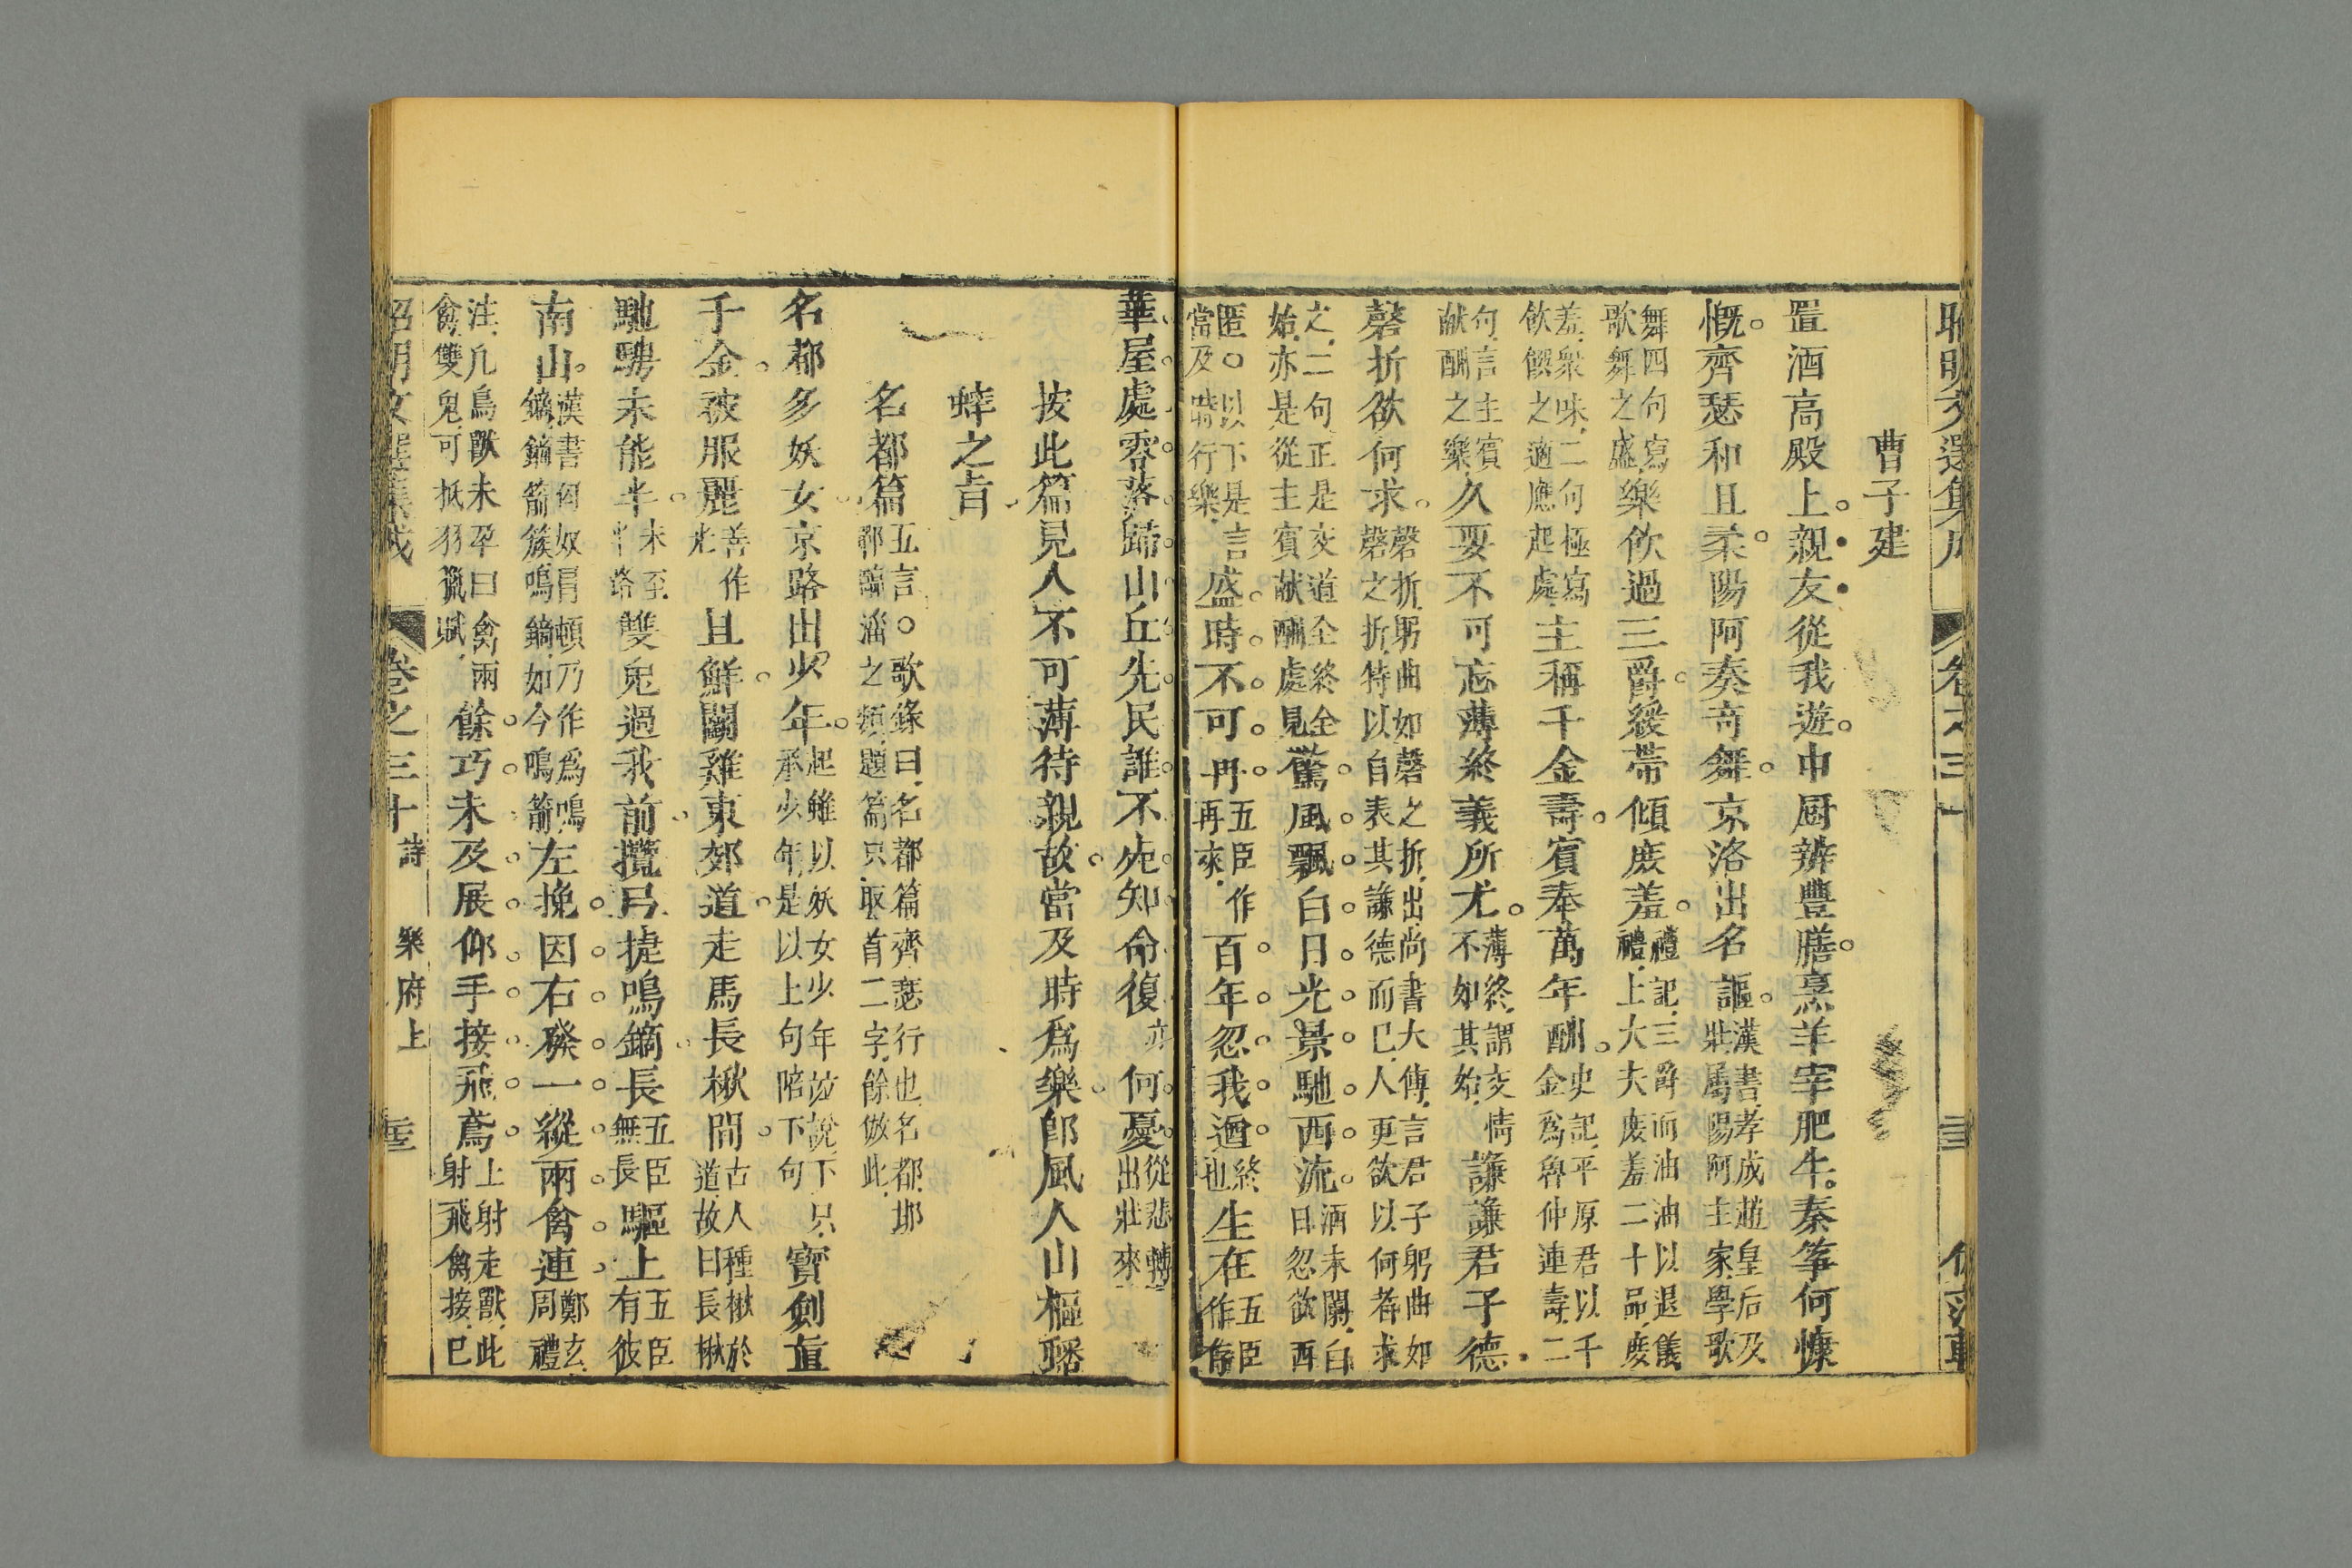 昭明文選集成 卷之三十
曹子建
置酒高殿上。親友從我遊。中厨辦豐膳。烹羊宰肥牛。秦筝何慷
慨。齊瑟和且柔。陽阿奏奇舞。京洛出名謳。漢書孝成趙皇后及壯屬陽阿主家學歌
舞四句寫歌舞之盛樂飲過三爵。緩帶傾庶羞。禮記三爵而油油以退儀禮上大夫庶羞二十品庶
羞衆味二句極寫飲饌之適應起處主稱千金壽。賓奉萬年酬。史記平原君以千金為魯仲連壽二
句言主賓献酬之樂久要不可忘薄終義所尤。薄終謂交情不如其始謙謙君子德
磬折欲何求。磬折躬曲如磬之折出尚書大傳言君子躬曲如磬之折特以自表其謙德而已人更欲以何者求
之二句正是交道全終全始亦是從主賓献酬處見驚風飄白日光景馳西流。酒未闌白日忽欲西
匿。以下是言當及時行樂盛時不可再五臣作再來百年忽我遒終也生在五臣作存
華屋處零落歸山丘先民誰不死知命復亦何憂從悲轉出壯來
按此篇見人不可薄待親故當及時為樂卽風人山樞蟋
蟀之旨
名都篇五言。歌錄曰名都篇齊瑟行也名都邯鄲臨淄之類題篇只取首二字餘倣此
名都多妖女京路出少年。起雖以妖女少年並說下只承少年是以上句陪下句寶劍直
千金。被服麗善作光且鮮。鬬雞東郊道走馬長楸間。古人種楸於道故曰長楸
馳騁未能半未至半路雙兔過我前攬弓捷鳴鏑長五臣無長驅上五臣有彼
南山。漢書匈奴冒頓乃作為鳴鏑鏑箭簇鳴鏑如今鳴箭左挽因右發一縱兩禽連鄭玄周禮
注凡鳥獸未孕曰禽兩禽雙兔可抵羽獵賦餘巧未及展仰手接飛鳶上射走獸此射飛禽接巳
昭明文選集成 卷之三十 詩 樂府上